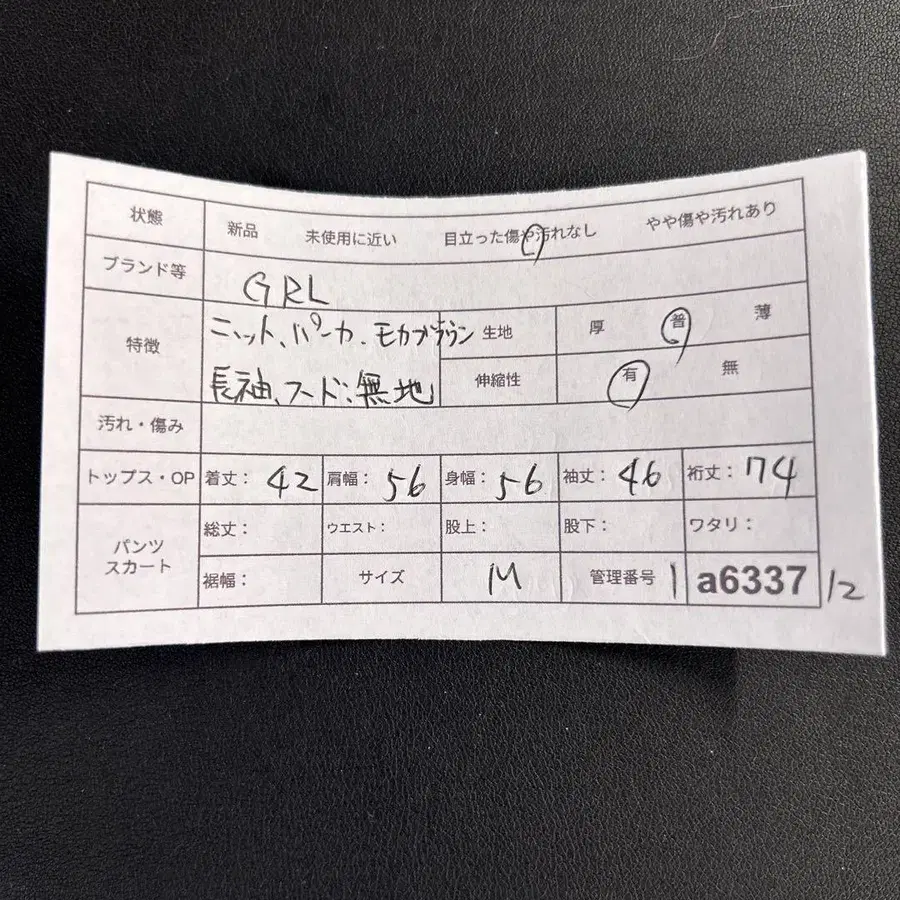 状態 新品 未使用に近い 目立った傷や汚れなし やや傷や汚れあり
ブランド等 GRL
特徴 ニット、パーカ、モカブラウン 生地 厚 普 薄
長袖、フード、無地 伸縮性 有 無
汚れ・傷み
トップス・OP 着丈: 42 肩幅: 56 身幅: 56 袖丈: 46 裄丈: 74
パンツ スカート 総丈: ウエスト: 股上: 股下: ワタリ:
裾幅: サイズ M 管理番号 1 a6337 12